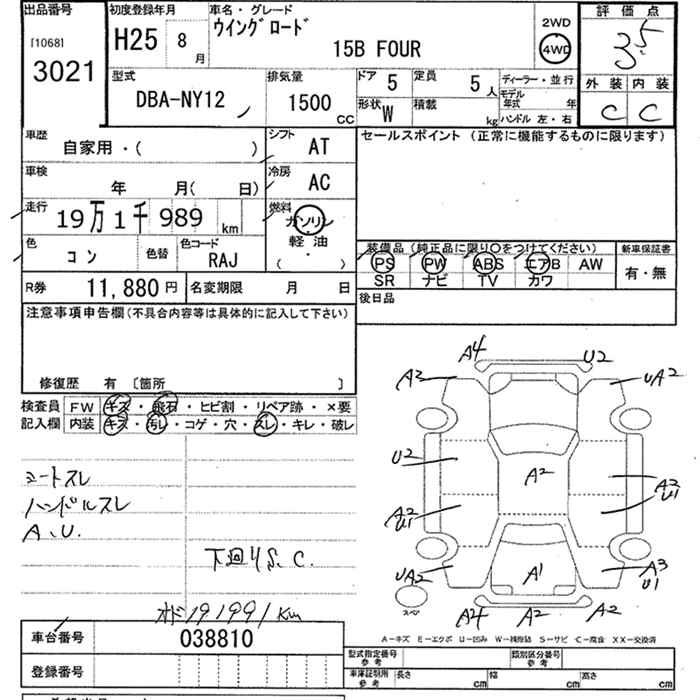 出品番号
[1068]
3021
初度登録年月
H25 8月
車名・グレード
ウイングロード
15B FOUR
2WD
4WD
評価点
3.5
外装 内装
C C
型式
DBA-NY12
排気量
1500 CC
ドア 5
定員 5人
形状 W
積載 kg
ディーラー・並行
モデル年式 年
ハンドル 左・右
車歴
自家用・( )
シフト
AT
車検
年 月( 日)
冷房
AC
走行
19万1千989 km
燃料
ガソリン
軽油
( ・ )
色
コン
色替
色コード
RAJ
R券 11,880円
名変期限 月 日
セールスポイント (正常に機能するものに限ります)
装備品 (純正品に限り○をつけてください)
PS PW ABS エアB AW
SR ナビ TV カワ
新車保証書
有・無
後日品
注意事項申告欄(不具合内容等は具体的に記入して下さい)
修復歴 有 [箇所 ]
検査員 FW キズ・飛石・ヒビ割・リペア跡・×要
記入欄 内装 キズ・汚レ・コゲ・穴・スレ・キレ・破レ
シートスレ
ハンドルスレ
A、U.
下回りS、C.
オド191991km
A4
U2
A3
UA2
U2
A2
A2
U1
A2
U1
UA2
A1
A3
U1
スペア
A4
A2
A2
A-キズ E-エクボ U-凹み W-補修跡 S-サビ C-腐食 XX-交換済
車台番号 038810
登録番号
型式指定番号
参考
類別区分番号
参考
車庫証明用
参考
長さ cm
幅 cm
高さ cm